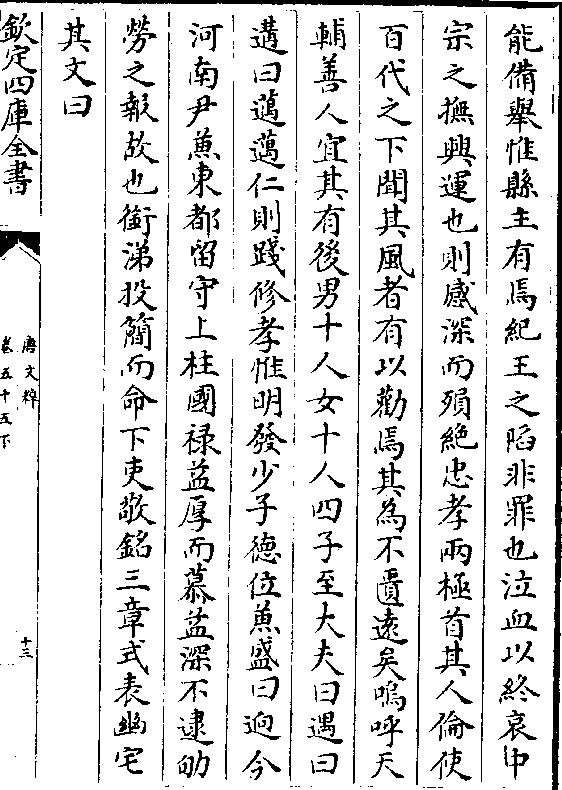 能備舉惟縣主有焉紀王之陷非罪也泣血以終哀中
宗之撫興運也則感深而殞絶忠孝兩極首其人倫使
百代之下聞其風者有以勸焉其為不匱遠矣嗚呼天
輔善人宜其有後男十人女十人四子至大夫曰遇曰
遘曰邁邁仁則踐修孝惟明發少子德位兼盛曰逈今
河南尹兼東都留守上柱國祿益厚而慕益深不逮劬
勞之報故也銜涕投簡而命下吏敬銘三章式表幽宅
其文曰
欽定四庫全書
唐文粹
卷五十五下
十三